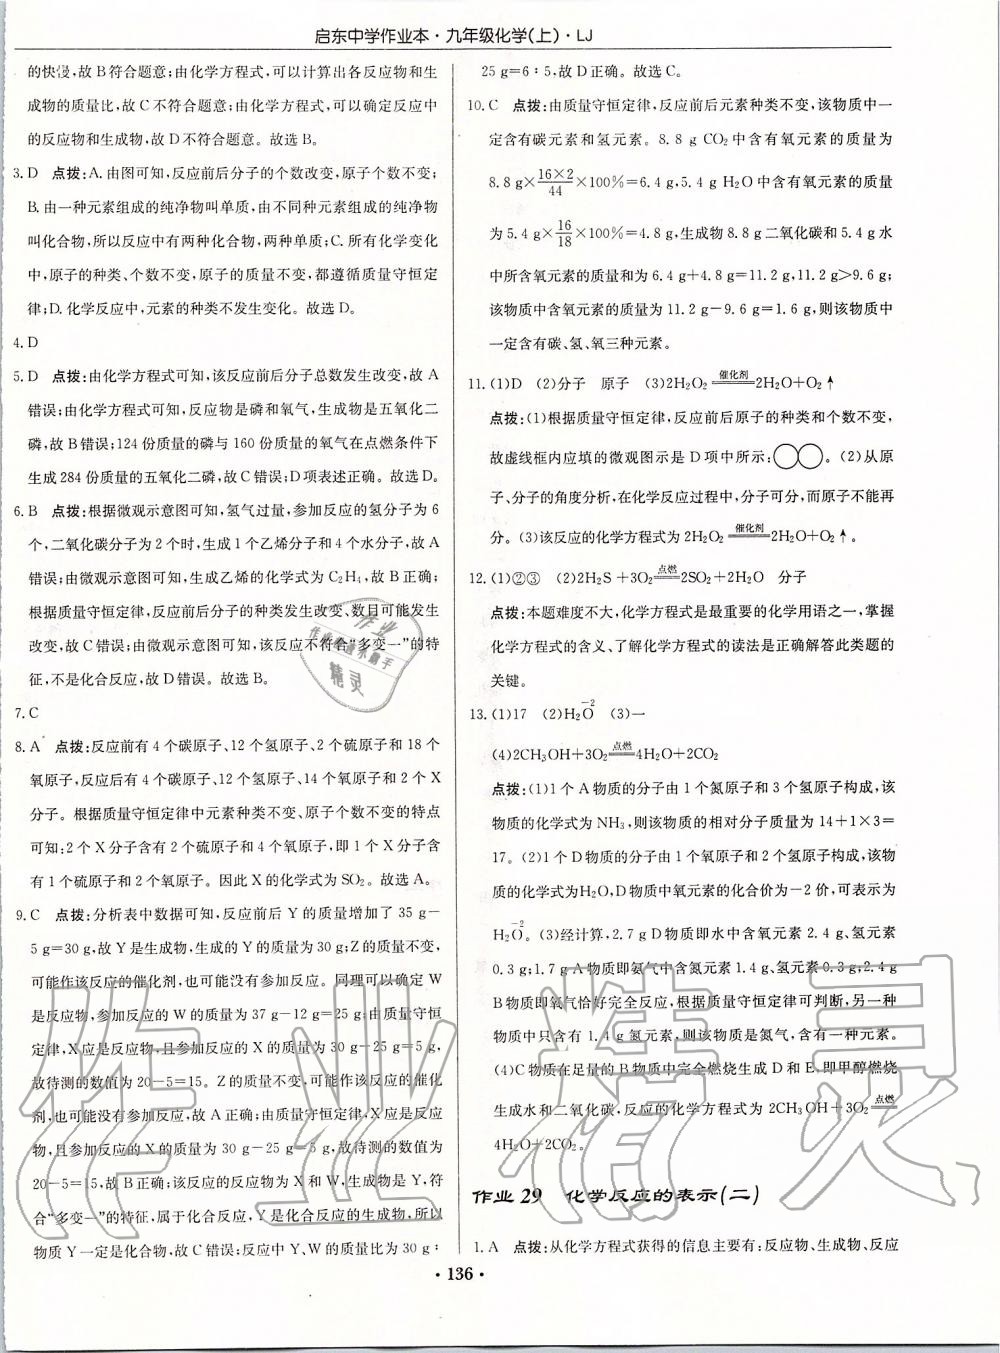 启东中学作业本·九年级化学(上)·LJ
的快慢,故 B 符合题意;由化学方程式,可以计算出各反应物和生
成物的质量比,故 C 不符合题意;由化学方程式,可以确定反应中
的反应物和生成物,故 D 不符合题意。故选 B。
3. D 点拨:A. 由图可知,反应前后分子的个数改变,原子个数不变;
B. 由一种元素组成的纯净物叫单质,由不同种元素组成的纯净物
叫化合物,所以反应中有两种化合物,两种单质;C. 所有化学变化
中,原子的种类、个数不变,原子的质量不变,都遵循质量守恒定
律;D. 化学反应中,元素的种类不发生变化。故选 D。
4. D
5. D 点拨:由化学方程式可知,该反应前后分子总数发生改变,故 A
错误;由化学方程式可知,反应物是磷和氧气,生成物是五氧化二
磷,故 B 错误;124 份质量的磷与 160 份质量的氧气在点燃条件下
生成 284 份质量的五氧化二磷,故 C 错误;D 项表述正确。故选 D。
6. B 点拨:根据微观示意图可知,氢气过量,参加反应的氢分子为 6
个,二氧化碳分子为 2 个时,生成 1 个乙烯分子和 4 个水分子,故 A
错误;由微观示意图可知,生成乙烯的化学式为 C₂H₄,故 B 正确;
根据质量守恒定律,反应前后分子的种类发生改变、数目可能发生
改变,故 C 错误;由微观示意图可知,该反应不符合“多变一”的特
征,不是化合反应,故 D 错误。故选 B。
7. C
8. A 点拨:反应前有 4 个碳原子、12 个氢原子、2 个硫原子和 18 个
氧原子,反应后有 4 个碳原子、12 个氢原子、14 个氧原子和 2 个 X
分子。根据质量守恒定律中元素种类不变、原子个数不变的特点
可知:2 个 X 分子含有 2 个硫原子和 4 个氧原子,即 1 个 X 分子含
有 1 个硫原子和 2 个氧原子。因此 X 的化学式为 SO₂。故选 A。
9. C 点拨:分析表中数据可知,反应前后 Y 的质量增加了 35 g-
5 g=30 g,故 Y 是生成物,生成的 Y 的质量为 30 g;Z 的质量不变,
可能作该反应的催化剂,也可能没有参加反应。同理可以确定 W
是反应物,参加反应的 W 的质量为 37 g-12 g=25 g;由质量守恒
定律,X 应是反应物,且参加反应的 X 的质量为 30 g-25 g=5 g,
故待测的数值为 20-5=15。Z 的质量不变,可能作该反应的催化
剂,也可能没有参加反应,故 A 正确;由质量守恒定律,X 应是反应
物,且参加反应的 X 的质量为 30 g-25 g=5 g,故待测的数值为
20-5=15,故 B 正确;该反应的反应物为 X 和 W,生成物是 Y,符
合“多变一”的特征,属于化合反应,Y 是化合反应的生成物,所以
物质 Y 一定是化合物,故 C 错误;反应中 Y、W 的质量比为 30 g∶
25 g=6∶5,故 D 正确。故选 C。
10. C 点拨:由质量守恒定律,反应前后元素种类不变,该物质中一
定含有碳元素和氢元素。8.8 g CO₂ 中含有氧元素的质量为
8.8 g×16×2/44×100%=6.4 g,5.4 g H₂O 中含有氧元素的质量
为 5.4 g×16/18×100%=4.8 g,生成物 8.8 g 二氧化碳和 5.4 g 水
中所含氧元素的质量和为 6.4 g+4.8 g=11.2 g,11.2 g>9.6 g;
该物质中含氧元素的质量为 11.2 g-9.6 g=1.6 g,则该物质中
一定含有碳、氢、氧三种元素。
11. (1)D (2)分子 原子 (3)2H₂O₂ 催化剂═══ 2H₂O+O₂↑
点拨:(1)根据质量守恒定律,反应前后原子的种类和个数不变,
故虚线框内应填的微观图示是 D 项中所示:○○。(2)从原
子、分子的角度分析,在化学反应过程中,分子可分,而原子不能再
分。(3)该反应的化学方程式为 2H₂O₂ 催化剂═══ 2H₂O+O₂↑。
12. (1)②③ (2)2H₂S+3O₂ 点燃═══ 2SO₂+2H₂O 分子
点拨:本题难度不大,化学方程式是最重要的化学用语之一,掌握
化学方程式的含义、了解化学方程式的读法是正确解答此类题的
关键。
13. (1)17 (2)H₂O(-2) (3)一
(4)2CH₃OH+3O₂ 点燃═══ 4H₂O+2CO₂
点拨:(1)1 个 A 物质的分子由 1 个氮原子和 3 个氢原子构成,该
物质的化学式为 NH₃,则该物质的相对分子质量为 14+1×3=
17。(2)1 个 D 物质的分子由 1 个氧原子和 2 个氢原子构成,该物
质的化学式为H₂O,D 物质中氧元素的化合价为-2 价,可表示为
H₂O(-2)。(3)经计算,2.7 g D 物质即水中含氧元素 2.4 g、氢元素
0.3 g;1.7 g A 物质即氨气中含氮元素 1.4 g、氢元素 0.3 g;2.4 g
B 物质即氧气恰好完全反应,根据质量守恒定律可判断,另一种
物质中只含有 1.4 g 氮元素,则该物质是氮气,含有一种元素。
(4)C 物质在足量的 B 物质中完全燃烧生成 D 和 E,即甲醇燃烧
生成水和二氧化碳,反应的化学方程式为 2CH₃OH+3O₂ 点燃═══
4H₂O+2CO₂。
作业 29 化学反应的表示(二)
1. A 点拨:从化学方程式获得的信息主要有:反应物、生成物、反应
·136·
作业
精灵
作业精灵